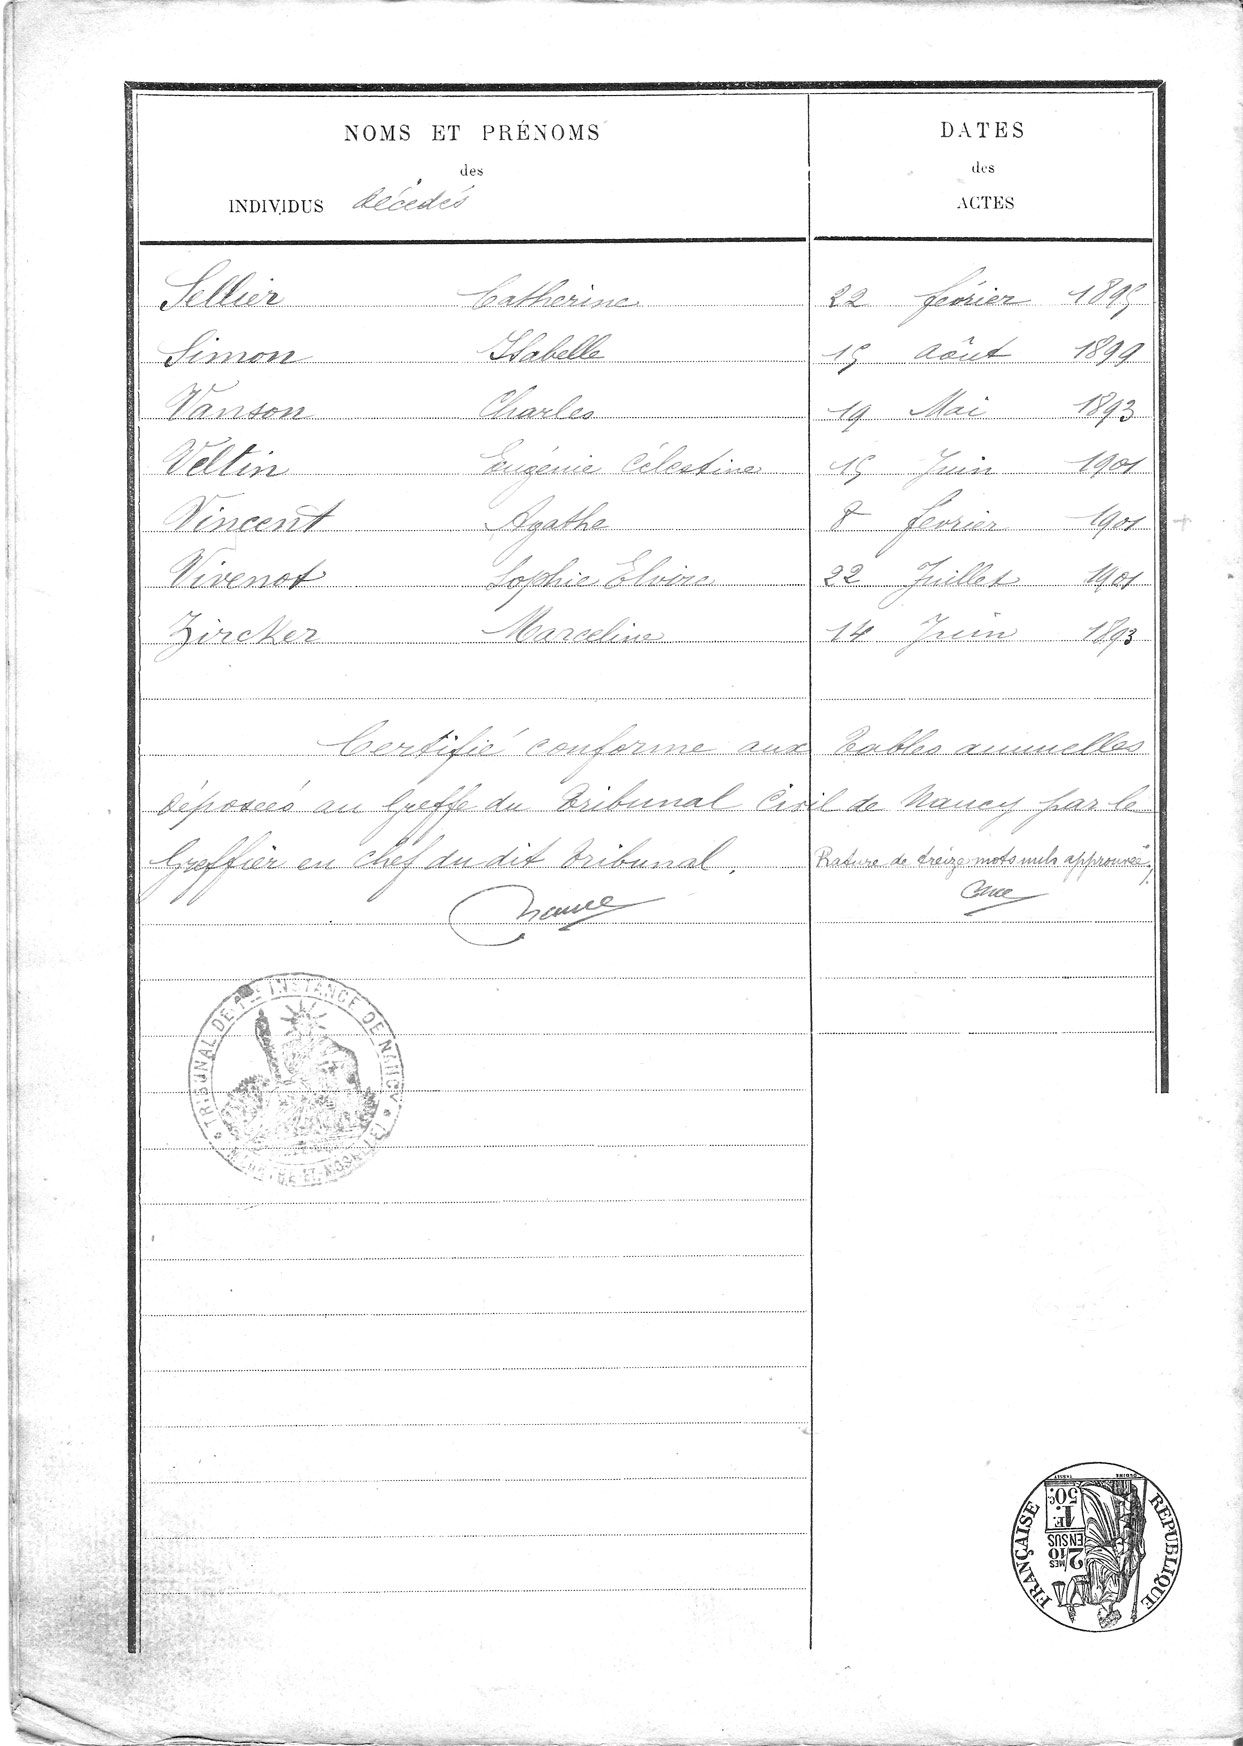 NOMS ET PRÉNOMS
des
INDIVIDUS Décédés
DATES
des
ACTES
Sellier Catherine 22 février 1895
Simon Isabelle 15 Août 1899
Vanson Charles 19 Mai 1893
Veltin Eugénie Célestine 15 Juin 1901
Vincent Agathe 8 février 1901
Vivenot Sophie Elvire 22 Juillet 1901
Zircker Marceline 14 Juin 1893
Certifié conforme aux Tables annuelles
déposées au Greffe du Tribunal Civil de Nancy par le
Greffier en chef du dit Tribunal.
Rature de treize mots nuls approuvée
TRIBUNAL DE 1RE INSTANCE DE NANCY
MEURTHE-ET-MOSELLE
RÉPUBLIQUE FRANÇAISE
1F. 50c.
2/10MES EN SUS